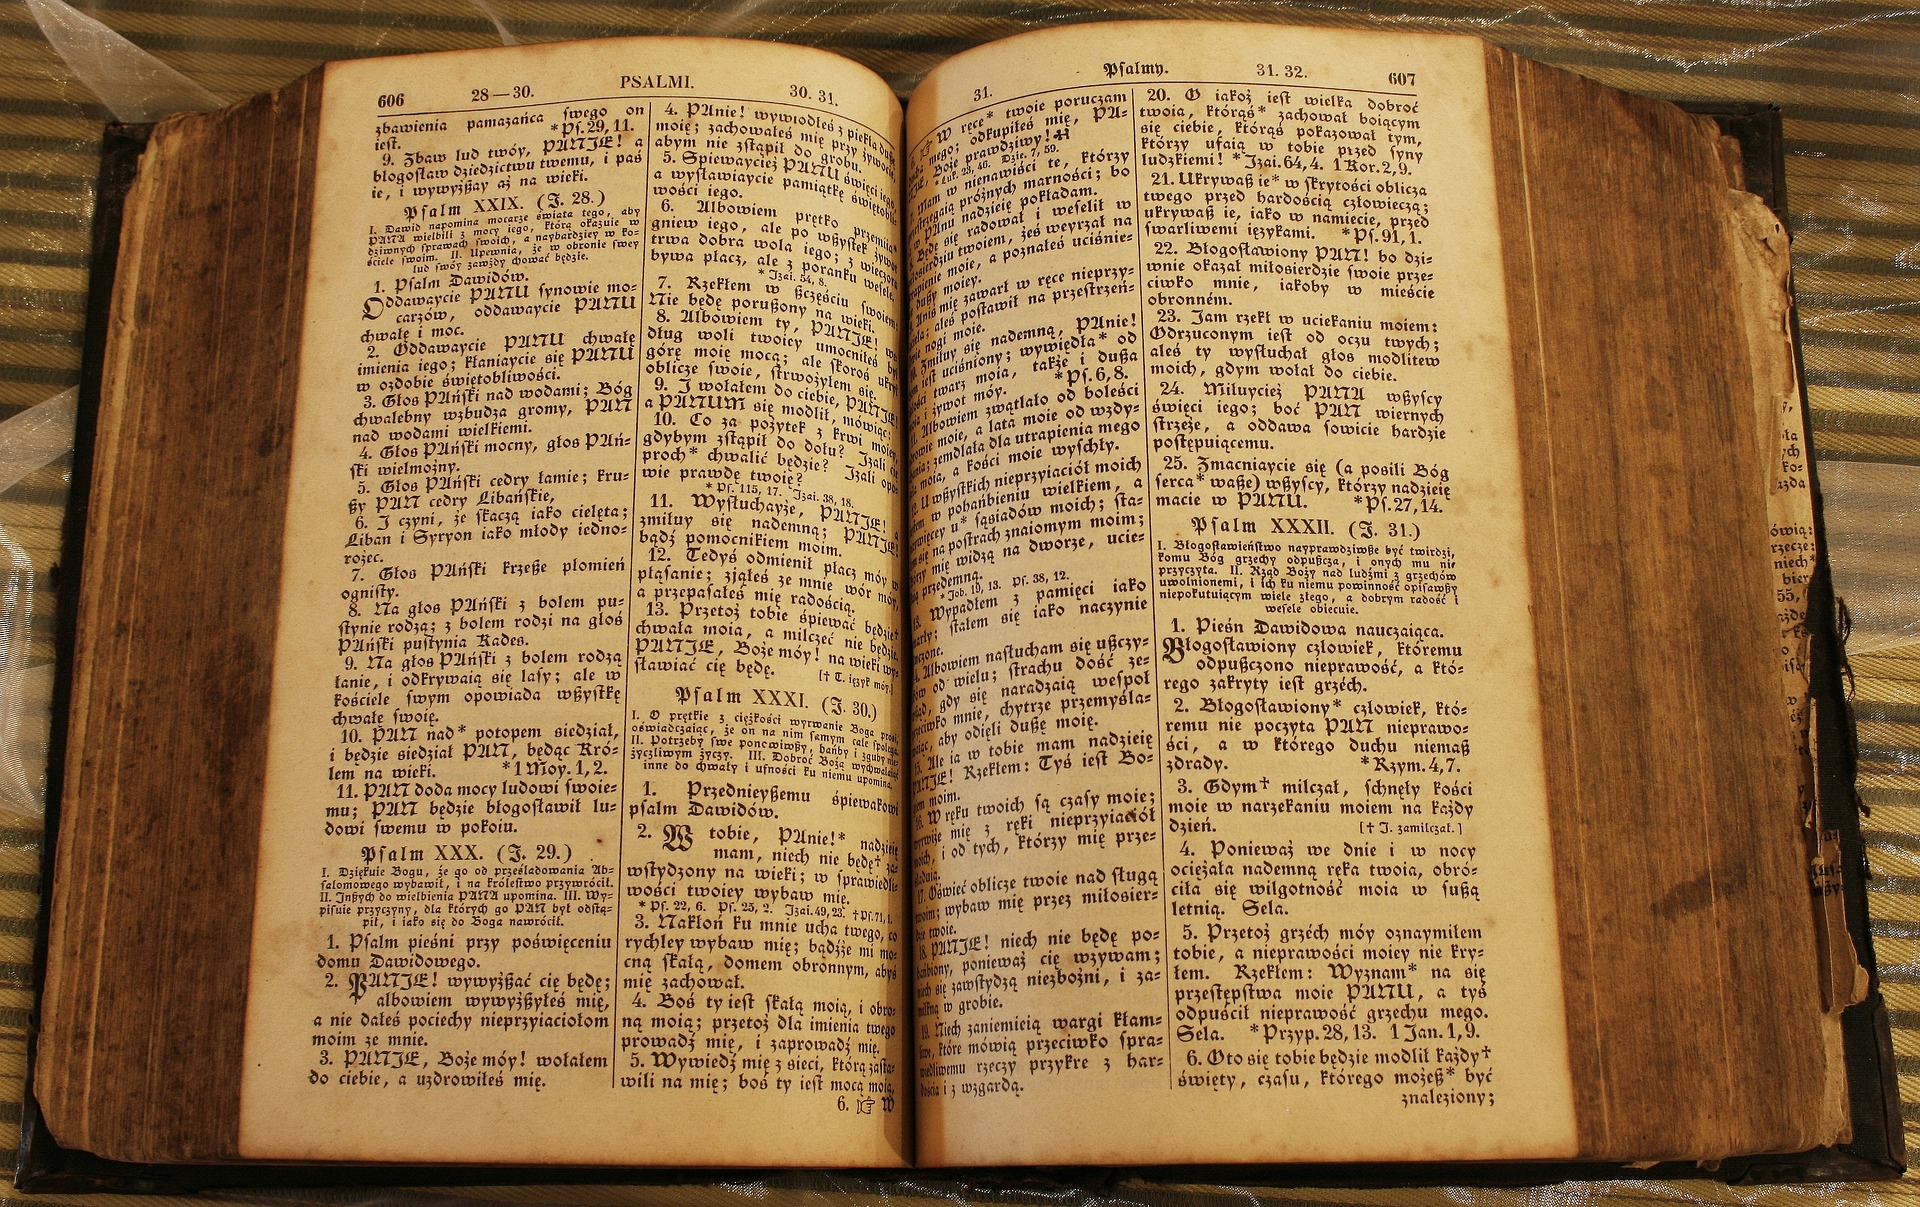 606 28—30. PSALMI. 30. 31.
zbawienia pamazańca swego on
jest. *Ps. 29, 11.
9. Zbaw lud twóy, PANJE! a
błogosław dziedzictwu twemu, i paś
ie, i wywyżßay aż na wieki.
Psalm XXIX. (J. 28.)
I. Dawid napomina mocarze świata tego, aby
PANA wielbili z mocy iego, którą okazuie w
dziwnych sprawach swoich, a naybardziey w ko-
ściele swoim. II. Upewnia, że w obronie swey
lud swóy zawżdy chować będzie.
1. Psalm Dawidów.
Oddawaycie PANU synowie mo-
carzów, oddawaycie PANU
chwałę i moc.
2. Oddawaycie PANU chwałę
imienia iego; kłaniaycie się PANU
w ozdobie świętobliwości.
3. Głos PAński nad wodami; Bóg
chwalebny wzbudza gromy, PAN
nad wodami wielkiemi.
4. Głos PAński mocny, głos PAń-
ski wielmożny.
5. Głos PAński cedry łamie; kru-
ßy PAN cedry Libańskie,
6. I czyni, że skaczą iako cielęta;
Liban i Syryon iako młody iedno-
rożec.
7. Głos PAński krzeße płomień
ognisty.
8. Na głos PAński z bolem pu-
stynie rodzą; z bolem rodzi na głos
PAński pustynia Kades.
9. Na głos PAński z bolem rodzą
łanie, i odkrywaią się lasy; ale w
kościele swym opowiada wßystkę
chwałę swoię.
10. PAN nad* potopem siedział,
i będzie siedział PAN, będąc Kró-
lem na wieki. *1 Moy. 1, 2.
11. PAN doda mocy ludowi swoie-
mu; PAN będzie błogosławił lu-
dowi swemu w pokoiu.
Psalm XXX. (J. 29.)
I. Dziękuie Bogu, że go od prześladowania Ab-
salomowego wybawił, i na królestwo przywrócił.
II. Inßych do wielbienia PANA upomina. III. Wy-
pisuie przyczyny, dla których go PAN był odstą-
pił, i iako się do Boga nawrócił.
1. Psalm pieśni przy poświęceniu
domu Dawidowego.
2. PANJE! wywyżßać cię będę;
albowiem wywyżßyłeś mię,
a nie dałeś pociechy nieprzyiaciołom
moim ze mnie.
3. PANJE, Boże móy! wołałem
do ciebie, a uzdrowiłeś mię.
4. PAnie! wywiodłeś z piekła dußę
moię; zachowałeś mię przy żywocie,
abym nie zstąpił do grobu.
5. Spiewaycież PANU święci iego,
a wysławiaycie pamiątkę świętobli-
wości iego.
6. Albowiem prętko przemija
gniew iego, ale po wßystek żywot
trwa dobra wola iego; z wieczora
bywa płacz, ale z poranku wesele.
* Izai. 54, 8.
7. Rzekłem w ßczęściu swoiem:
Nie będę porußony na wieki.
8. Albowiem ty, PANJE!
dług woli twoiey umocniłeś był
górę moię mocą; ale skoroś ukrył
oblicze swoie, strwożyłem się.
9. I wołałem do ciebie, PANJE!
a PANUM się modlił, mówiąc:
10. Co za pożytek z krwi moiey,
gdybym zstąpił do dołu? Izali cię
proch* chwalić będzie? Izali opo-
wie prawdę twoię?
* Ps. 115, 17. Izai. 38, 18.
11. Wysłuchayże, PANJE!
zmiłuy się nademną; PANJE!
bądź pomocnikiem moim.
12. Tedyś odmienił płacz móy w
pląsanie; zjąłeś ze mnie wór móy,
a przepasałeś mię radością.
13. Przetoż tobie śpiewać będzie†
chwała moia, a milczeć nie będzie.
PANJE, Boże móy! na wieki wy-
sławiać cię będę. [† T. ięzyk móy.]
Psalm XXXI. (J. 30.)
I. O prętkie z ciężkości wyrwanie Boga prosi,
oświadczając, że on na nim samym cale spolega.
II. Potrzeby swe ponowiwßy, hańby i zguby nie-
życzliwym życzy. III. Dobroć Bożą wychwalając
inne do chwały i ufności ku niemu upomina.
1. Przednieyßemu śpiewakowi
psalm Dawidów.
2. W tobie, PAnie!* nadzieię
mam, niech nie będę† za-
wstydzony na wieki; w sprawiedli-
wości twoiey wybaw mię.
* Ps. 22, 6. Ps. 25, 2. Izai. 49, 23. † Ps. 71, 1.
3. Nakłoń ku mnie ucha twego, co
rychley wybaw mię; bądźże mi mo-
cną skałą, domem obronnym, abyś
mię zachował.
4. Boś ty iest skałą moią, i obro-
ną moią; przetoż dla imienia twego
prowadź mię, i zaprowadź mię.
5. Wywiedź mię z sieci, którą zasta-
wili na mię; boś ty iest mocą moią,
6. ☞ W
31. Psalmy. 31. 32. 607
W ręce* twoie poruczam
mego; odkupiłeś mię, PA-
Boże prawdziwy!
* Łuk. 23, 46. Dzie. 7, 59.
Mam w nienawiści te, którzy
przestrzegaią próżnych marności; bo
w PAnu nadzieię pokładam.
Będę się radował i weselił w
miłosierdziu twoiem, żeś weyrzał na
utrapienie moie, a poznałeś uciśnie-
dußy moiey.
mię zawarł w ręce nieprzy-
aleś postawił na przestrzeń-
nogi moie.
Zmiłuy się nademną, PAnie!
iest uciśniony; wywiędła* od
twarz moia, także i dußa
i żywot móy. *Ps. 6, 8.
11. Albowiem zwątlało od boleści
moie, a lata moie od wzdy-
zemdlała dla utrapienia mego
moia, a kości moie wyschły.
12. U wßystkich nieprzyiaciół moich
w pohańbieniu wielkiem, a
u* sąsiadów moich; sta-
się na postrach znaiomym moim;
mię widzą na dworze, ucie-
przedemną.
* Job. 19, 13. Ps. 38, 12.
13. Wypadłem z pamięci iako
stałem się iako naczynie
14. Albowiem nasłucham się ußczy-
od wielu; strachu dość ze-
gdy się naradzaią wespoł
przeciwko mnie, chytrze przemyśla-
aby odięli dußę moię.
15. Ale ia w tobie mam nadzieię
PANJE! Rzekłem: Tyś iest Bo-
moim.
16. W ręku twoich są czasy moie;
wyrwiże mię z ręki nieprzyiaciół
moich, i od tych, którzy mię prze-
17. Oświeć oblicze twoie nad sługą
twoim; wybaw mię przez miłosier-
twoie.
18. PANJE! niech nie będę po-
hańbiony, ponieważ cię wzywam;
niech się zawstydzą niezbożni, i za-
milkną w grobie.
19. Niech zaniemieią wargi kłam-
liwe, które mówią przeciwko spra-
wiedliwemu rzeczy przykre z har-
dością i z wzgardą.
20. O iakoż iest wielka dobroć
twoia, którąś* zachował boiącym
się ciebie, którąś pokazował tym,
którzy ufaią w tobie przed syny
ludzkiemi! *Izai. 64, 4. 1 Kor. 2, 9.
21. Ukrywaß ie* w skrytości oblicza
twego przed hardością człowieczą;
ukrywaß ie, iako w namiecie, przed
swarliwemi ięzykami. *Ps. 91, 1.
22. Błogosławiony PAN! bo dzi-
wnie okazał miłosierdzie swoie prze-
ciwko mnie, iakoby w mieście
obronném.
23. Jam rzekł w uciekaniu moiem:
Odrzuconym iest od oczu twych;
aleś ty wysłuchał głos modlitew
moich, gdym wołał do ciebie.
24. Miłuycież PANA wßyscy
święci iego; boć PAN wiernych
strzeże, a oddawa sowicie hardzie
postępuiącemu.
25. Zmacniaycie się (a posili Bóg
serca* waße) wßyscy, którzy nadzieię
macie w PANU. *Ps. 27, 14.
Psalm XXXII. (J. 31.)
I. Błogosławieństwo nayprawdziwße być twirdzi,
komu Bóg grzechy odpußcza, i onych mu nie
przyczyta. II. Rząd Boży nad ludźmi z grzechów
uwolnionemi, i ich ku niemu powinność opisawßy
niepokutuiącym wiele złego, a dobrym radość i
wesele obiecuie.
1. Pieśn Dawidowa nauczaiąca.
Błogosławiony człowiek, któremu
odpußczono nieprawość, a któ-
rego zakryty iest grzéch.
2. Błogosławiony* człowiek, któ-
remu nie poczyta PAN nieprawo-
ści, a w którego duchu niemaß
zdrady. *Rzym. 4, 7.
3. Gdym† milczał, schnęły kości
moie w narzekaniu moiem na każdy
dzień. [† J. zamilczał.]
4. Ponieważ we dnie i w nocy
ociężała nademną ręka twoia, obró-
ciła się wilgotność moia w sußą
letnią. Sela.
5. Przetoż grzéch móy oznaymiłem
tobie, a nieprawości moiey nie kry-
łem. Rzekłem: Wyznam* na się
przestępstwa moie PANU, a tyś
odpuścił nieprawość grzechu mego.
Sela. *Przyp. 28, 13. 1 Jan. 1, 9.
6. Oto się tobie będzie modlił każdy†
święty, czasu, którego możeß* być
znaleziony;